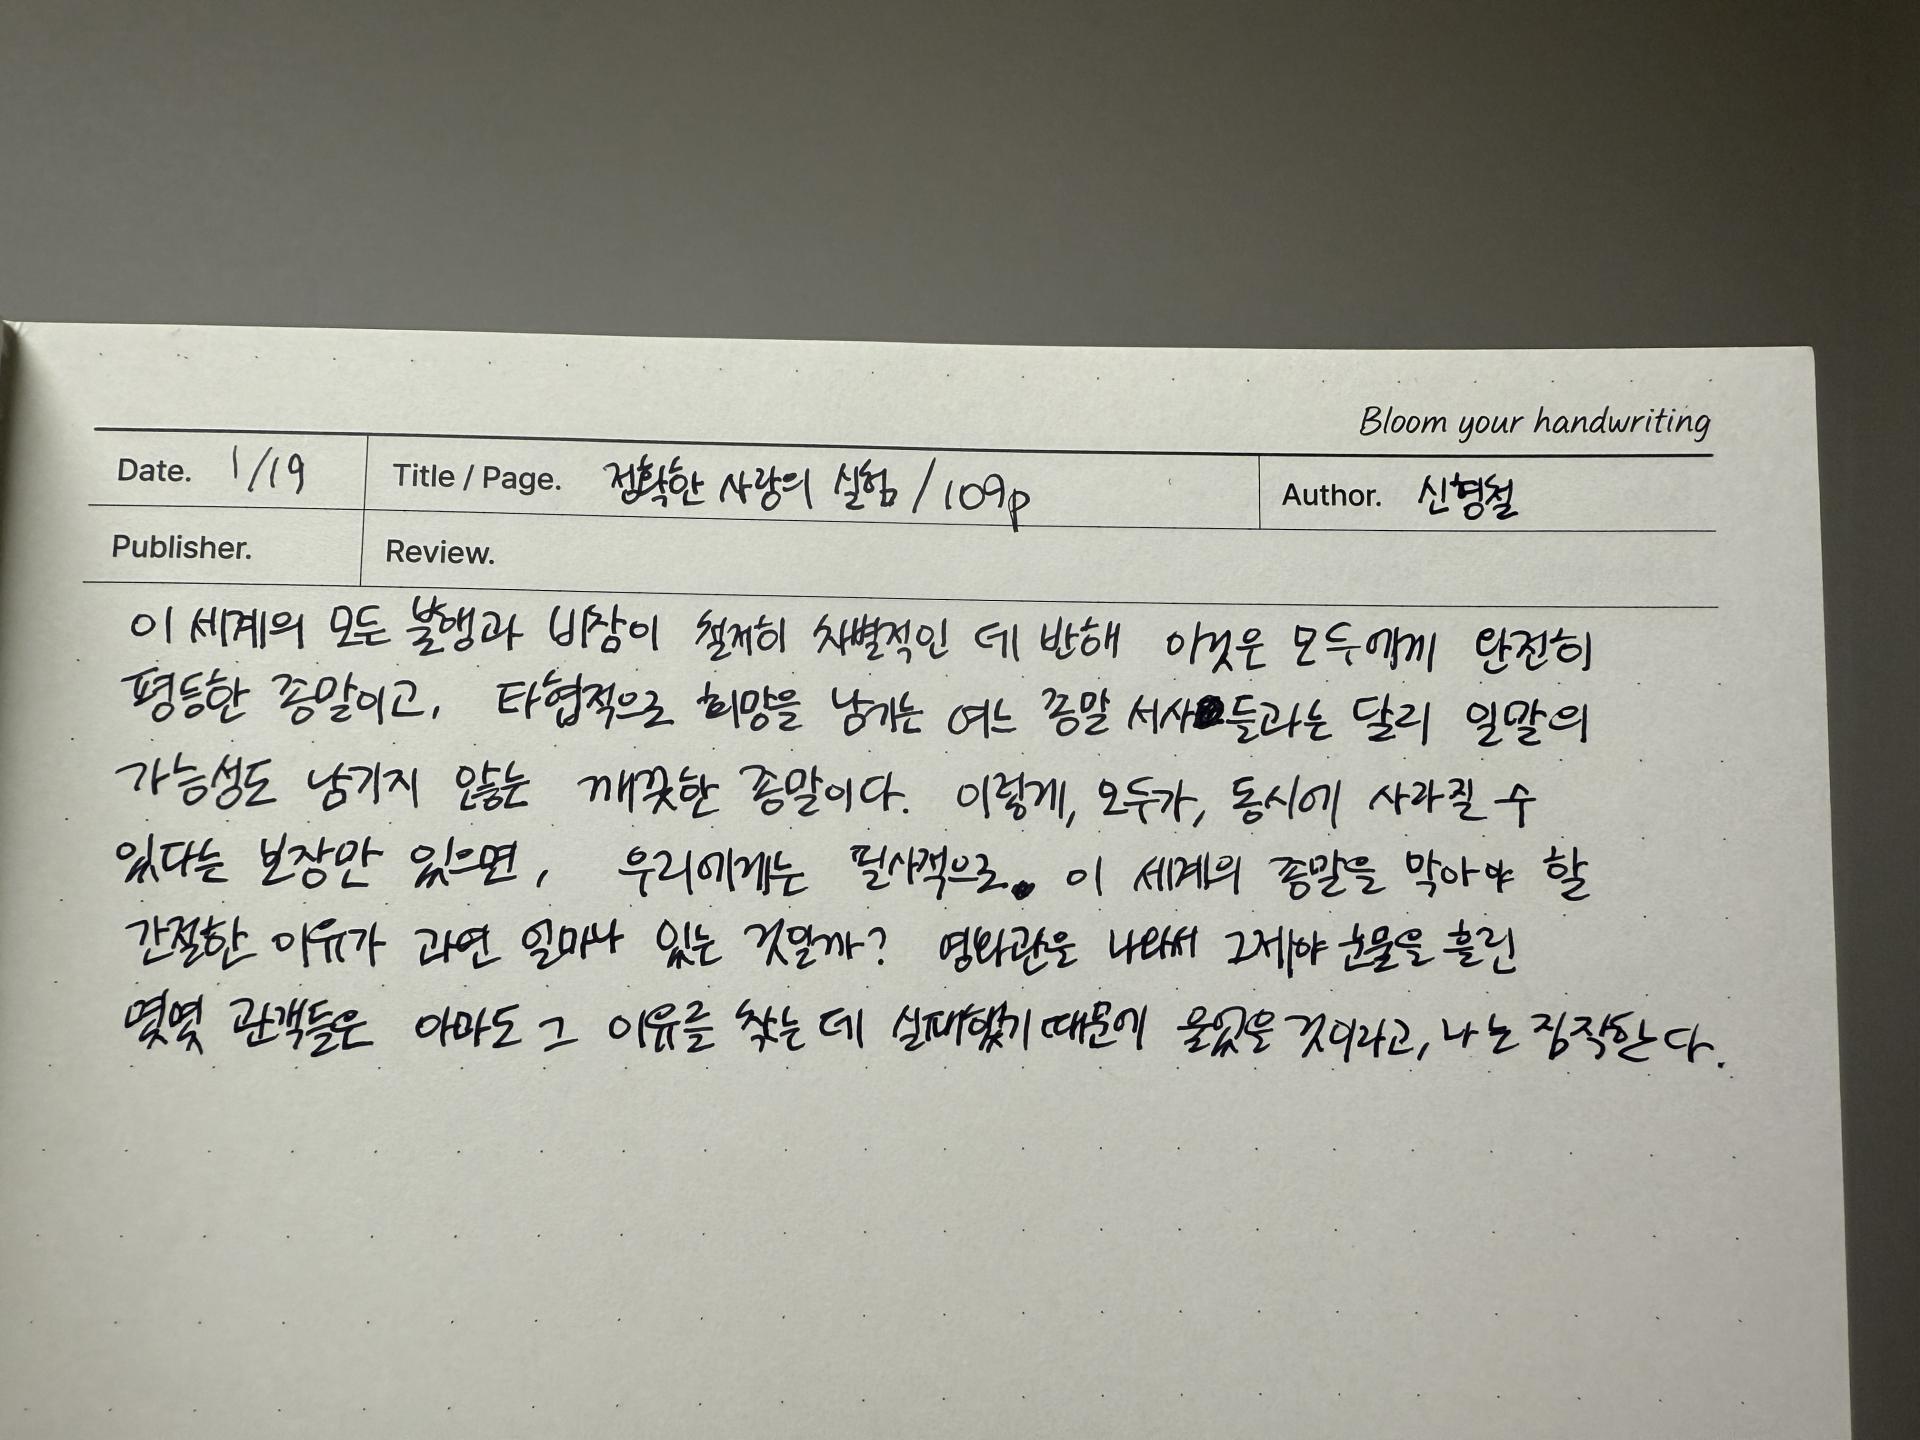 Bloom your handwriting
Date. 1/19 Title / Page. 정확한 사랑의 실험 / 109p Author. 신형철
Publisher. Review.
이 세계의 모든 불행과 비참이 철저히 차별적인 데 반해 이것은 모두에게 완전히
평등한 종말이고, 타협적으로 희망을 남기는 여느 종말 서사들과는 달리 일말의
가능성도 남기지 않는 깨끗한 종말이다. 이렇게, 모두가, 동시에 사라질 수
있다는 보장만 있으면, 우리에게는 필사적으로 이 세계의 종말을 막아야 할
간절한 이유가 과연 얼마나 있는 것일까? 영화관을 나와서 그제야 눈물을 흘린
몇몇 관객들은 아마도 그 이유를 찾는 데 실패했기 때문에 울었을 것이라고, 나는 짐작한다.